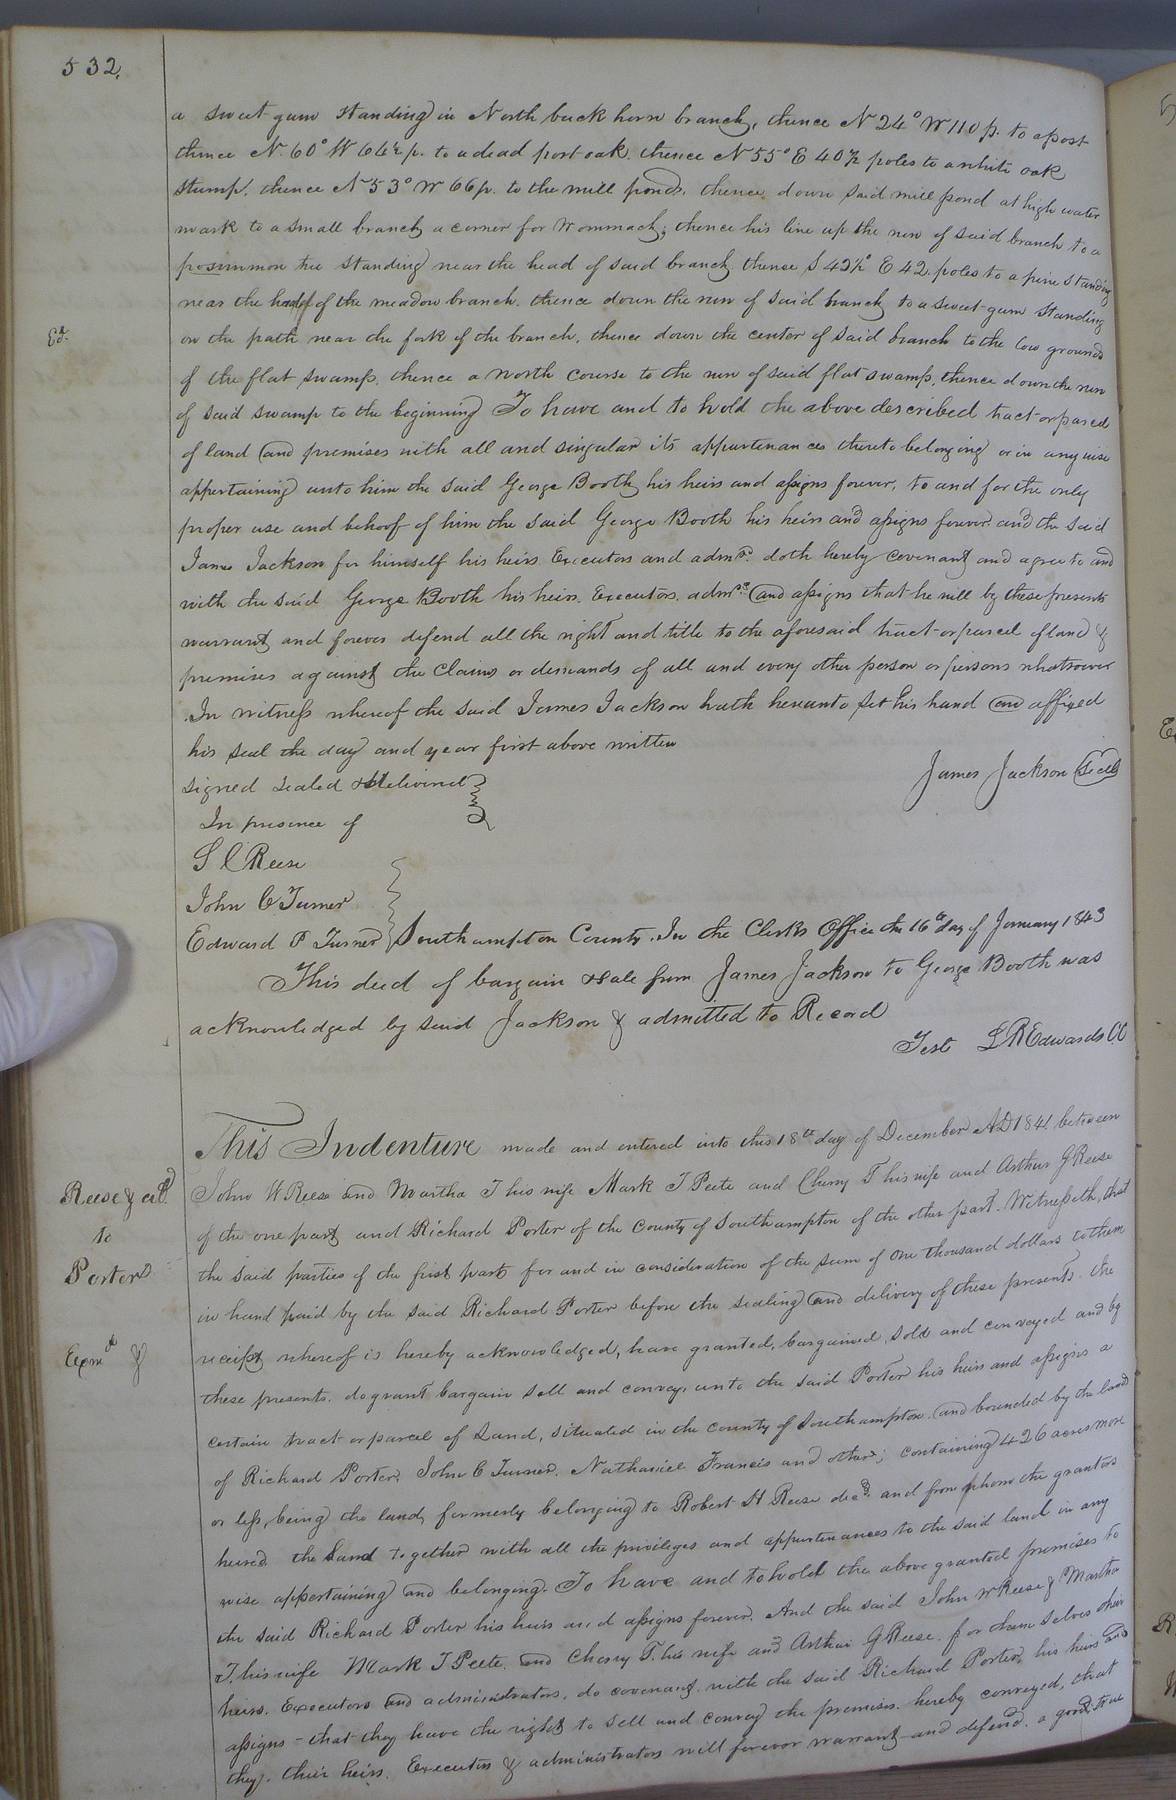 532.
a sweet gum standing in North buck horn branch, thence N 24° W 110 p. to a post
thence N. 60° W 64½ p. to a dead post oak. thence N 55° E 40½ poles to a white oak
stump. thence N 53° W 66 p. to the mill pond. thence down said mill pond at high water
mark to a small branch a corner for Wommack; thence his line up the run of said branch to a
posimmon tree standing near the head of said branch. thence S 43½° E 42. poles to a pine standing
near the head of the meadow branch. thence down the run of said branch to a sweet gum standing
Ex.
on the path near the fork of the branch, thence down the center of said branch to the low grounds
of the flat swamp, thence a north course to the run of said flat swamp, thence down the run
of said swamp to the beginning To have and to hold the above described tract or parcel
of land and premises with all and singular its appurtenances thereto belonging or in any wise
appertaining unto him the said George Booth his heirs and assigns forever, to and for the only
proper use and behoof of him the said George Booth his heirs and assigns forever and the said
James Jackson for himself his heirs Executors and admrs. doth hereby covenant and agree to and
with the said George Booth his heirs. Executors, admrs and assigns that he will by these presents
warrant and forever defend all the right and title to the aforesaid tract or parcel of land &
premises against the Claims or demands of all and every other person or persons whatsoever
In witness whereof the said James Jackson hath hereunto set his hand and affixed
his seal the day and year first above written
James Jackson Seal
signed sealed & delivered
In presence of
S C Reese
John C Turner
Edward P Turner
Southampton County. In the Clerks Office the 16th day of January 1843
This deed of bargain & sale from James Jackson to George Booth was
acknowledged by said Jackson & admitted to Record
Test L R Edwards C.C
This Indenture made and entered into this 18th day of December AD 1841 between
Reese & al
to
Porter
Exmd &
John W Reese and Martha T his wife Mark T Peete and Cherry T his wife and Arthur G Reese
of the one part and Richard Porter of the County of Southampton of the other part. Witnesseth, that
the said parties of the first part for and in consideration of the sum of One thousand dollars to them
in hand paid by the said Richard Porter before the sealing and delivery of these presents. the
receipt whereof is hereby acknowledged, have granted, bargained, sold and conveyed and by
these presents. do grant bargain sell and convey, unto the said Porter his heirs and assigns a
certain tract or parcel of Land, situated in the county of Southampton. and bounded by the land
of Richard Porter, John C Turner. Nathaniel Francis and others; containing 426 acres more
or less, being the land, formerly belonging to Robert H Reese decd. and from whom the grantors
heired the Land together with all the privileges and appurtenances to the said land in any
wise appertaining and belonging. To have and to hold the above granted premises to
the said Richard Porter his heirs and assigns forever. And the said John W Reese & Martha
T. his wife Mark T Peete. and Cherry T. his wife and Arthur G Reese. for them selves their
heirs. Executors and administrators. do covenant with the said Richard Porter, his heirs and
assigns - that they have the right to sell and convey the premises. hereby conveyed, that
they. their heirs. Executors & administrators will forever warrant and defend. a good, true